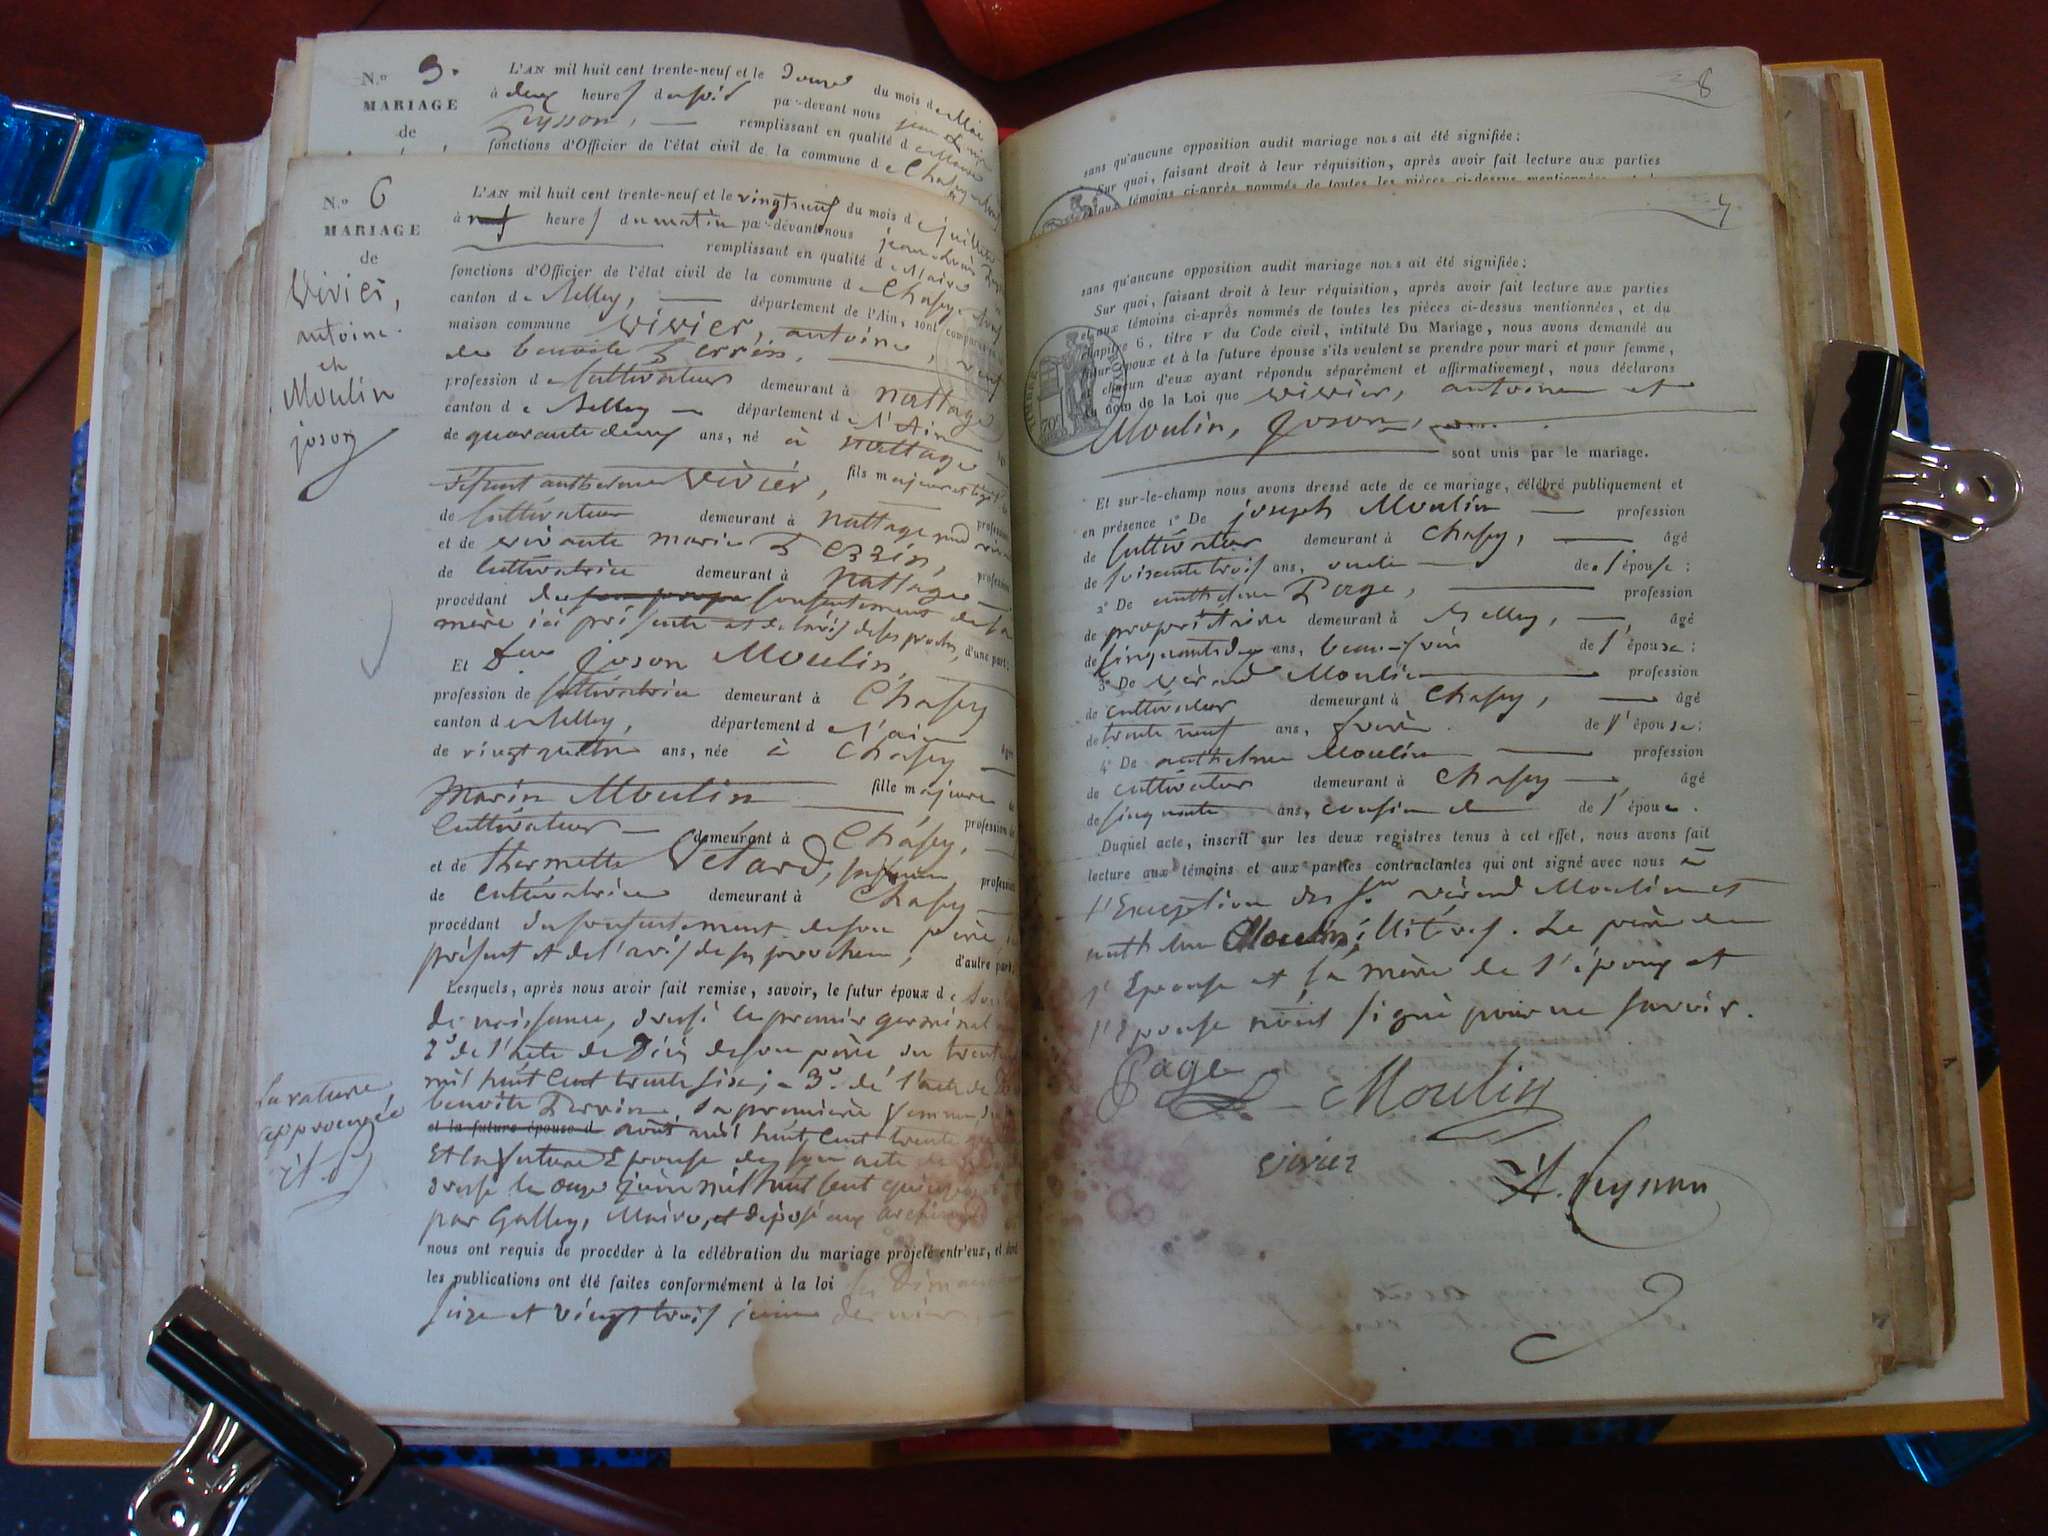 N.º 3.
MARIAGE
de
L'AN mil huit cent trente-neuf et le douze du mois de Mai
à deux heures du soir par-devant nous jean Louis
Peysson, remplissant en qualité de Maire
fonctions d'Officier de l'état civil de la commune de Chasey
N.º 6
MARIAGE
de
Vivier,
antoine
et
Moulin
joson
L'AN mil huit cent trente-neuf et le vingt neuf du mois de juillet
à heures du matin par-devant nous jean Louis
remplissant en qualité de Maire
fonctions d'Officier de l'état civil de la commune de Chasey
canton de Belley, département de l'Ain, sont comparus en
maison commune Vivier, antoine, veuf
de benoite Perrin,
profession de Cultivateur demeurant à Nattage
canton de Belley département de l'Ain
de quarante deux ans, né à Nattage
défunt anthelme Vivier, fils majeur
de Cultivateur demeurant à Nattage
et de vivante marie
de Cultivatrice demeurant à Nattage
procédant du consentement de sa
mère ici présente et de l'avis de ses proches, d'une part;
Et joson Moulin,
profession de Cultivatrice demeurant à Chasey
canton de Belley, département de l'ain âgée
de vingt quatre ans, née à Chasey
Marin Moulin fille majeure de
Cultivateur demeurant à Chasey, profession de
et de Thermette Vetard, profession
de Cultivatrice demeurant à Chasey
procédant du consentement de son père
présent et de l'avis de ses proches, d'autre part;
Lesquels, après nous avoir fait remise, savoir, le futur époux de son
de naissance, dressé le premier germinal
2º de l'acte de Décès de son père du trente
mil huit Cent trente six; 3º de l'acte de
benoite Perrin, sa première femme, du
et la future épouse d août mil huit Cent trente
Et la future Epouse de son acte de
dressé le onze juin mil huit Cent quinze
par Galley, Maire, et déposé aux archives
nous ont requis de procéder à la célébration du mariage projeté entr'eux, et dont
les publications ont été faites conformément à la loi les Dimanches
seize et vingt trois juin dernier,
La rature
approuvée
8
sans qu'aucune opposition audit mariage nous ait été signifiée;
Sur quoi, faisant droit à leur réquisition, après avoir fait lecture aux parties
et aux témoins ci-après nommés de toutes les pièces ci-dessus mentionnées
7
sans qu'aucune opposition audit mariage nous ait été signifiée;
Sur quoi, faisant droit à leur réquisition, après avoir fait lecture aux parties
et aux témoins ci-après nommés de toutes les pièces ci-dessus mentionnées, et du
chapitre 6, titre v du Code civil, intitulé Du Mariage, nous avons demandé au
futur époux et à la future épouse s'ils veulent se prendre pour mari et pour femme,
chacun d'eux ayant répondu séparément et affirmativement, nous déclarons
au nom de la Loi que Vivier, antoine et
Moulin, Joson,
sont unis par le mariage.
TIMBRE ROYAL
70
Et sur-le-champ nous avons dressé acte de ce mariage, célébré publiquement et
en présence 1º De joseph Moulin profession
de Cultivateur demeurant à Chasey, âgé
de soixante trois ans, oncle de l'épouse;
2º De anthelme Page, profession
de propriétaire demeurant à Belley, âgé
de cinquante deux ans, beau-frère de l'épouse;
3º De vérand Moulin profession
de cultivateur demeurant à Chasey, âgé
de trente neuf ans, frère de l'épouse;
4º De anthelme Moulin profession
de cultivateur demeurant à Chasey âgé
de cinquante ans, cousin de l'épouse.
Duquel acte, inscrit sur les deux registres tenus à cet effet, nous avons fait
lecture aux témoins et aux parties contractantes qui ont signé avec nous à
l'Exception des Srs vérand Moulin et
anthelme Moulin, illitérés. Le père de
l'Epouse et la mère de l'époux et
l'Epouse n'ont signé pour ne savoir.
Page Moulin
vivier
Peysson